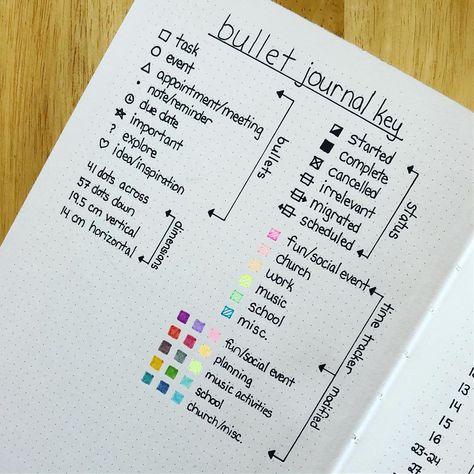 bullet journal key
task
event
appointment/meeting
note/reminder
due date
important
? explore
idea/inspiration
bullets
41 dots across
57 dots down
19.5 cm vertical
14 cm horizontal
dimensions
started
complete
cancelled
irrelevant
migrated
scheduled
status
fun/social event
church
work
music
school
misc.
time tracker
fun/social event
planning
music activities
school
church/misc.
modified
12
13
14
15
16
23-24
27